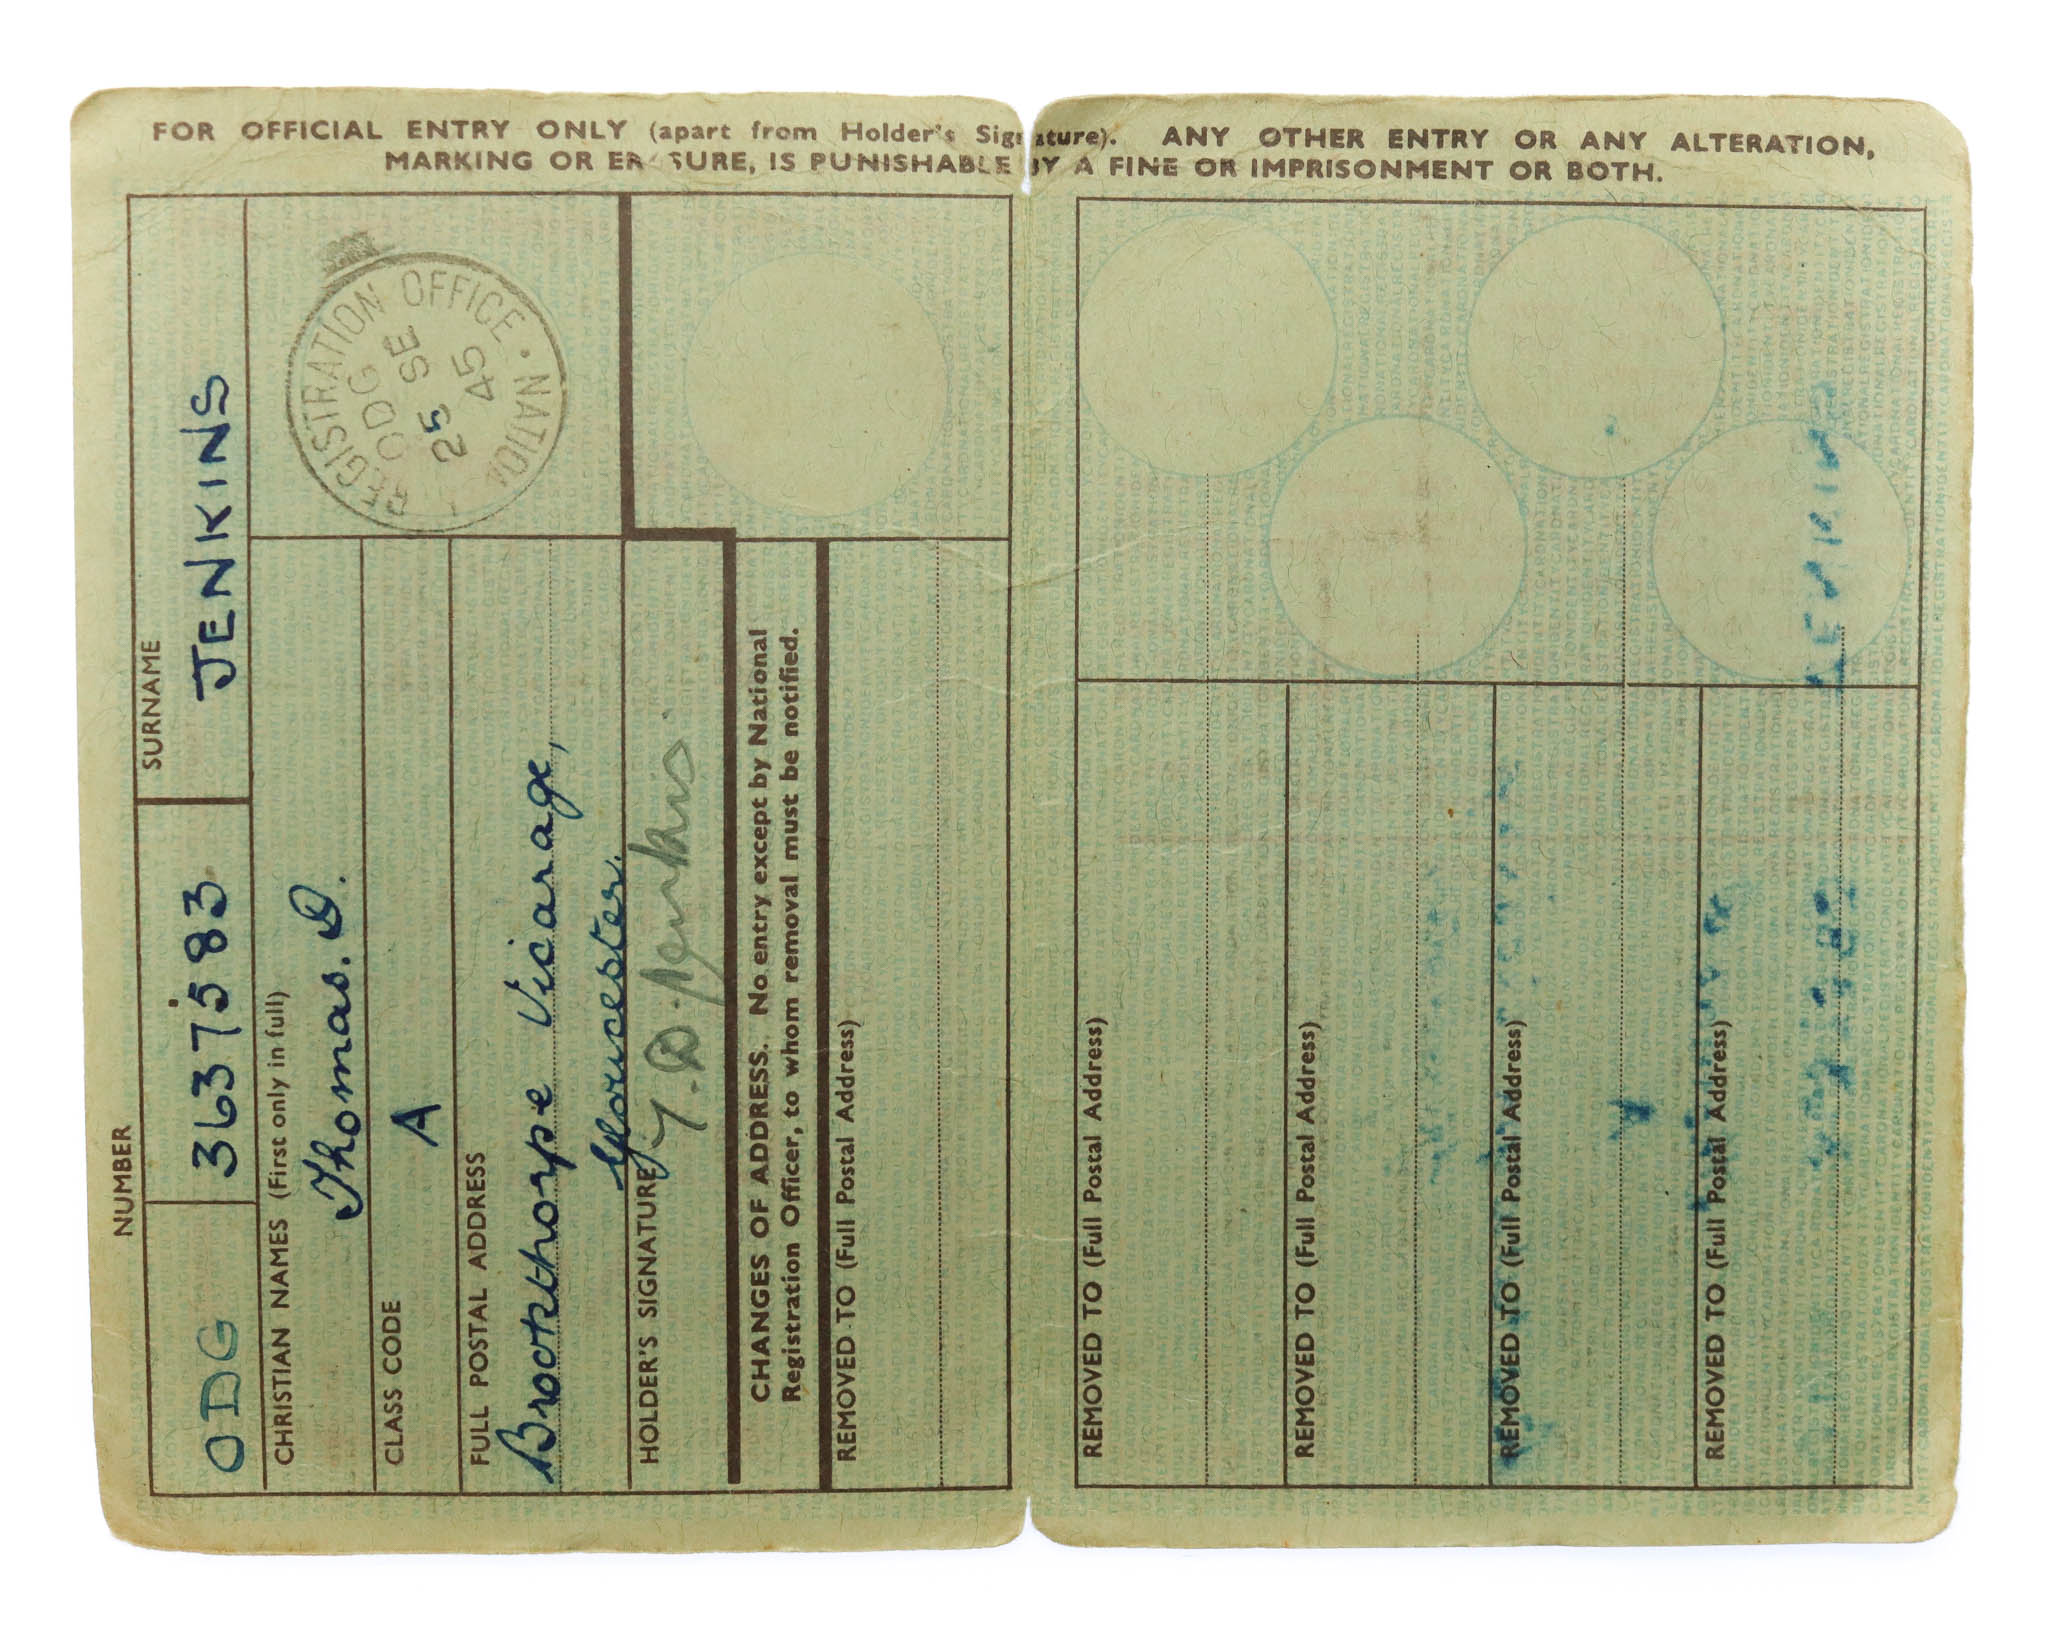 FOR OFFICIAL ENTRY ONLY (apart from Holder's Signature). ANY OTHER ENTRY OR ANY ALTERATION,
MARKING OR ERASURE, IS PUNISHABLE BY A FINE OR IMPRISONMENT OR BOTH.
NUMBER
SURNAME
ODG
363758 3
JENKINS
CHRISTIAN NAMES (First only in full)
Thomas. D.
REGISTRATION OFFICE · NATIONA
ODG
25 SE
45
CLASS CODE
A
FULL POSTAL ADDRESS
Brookthorpe Vicarage,
Gloucester.
HOLDER'S SIGNATURE
T. D. Jenkins.
CHANGES OF ADDRESS. No entry except by National
Registration Officer, to whom removal must be notified.
REMOVED TO (Full Postal Address)
REMOVED TO (Full Postal Address)
REMOVED TO (Full Postal Address)
REMOVED TO (Full Postal Address)
REMOVED TO (Full Postal Address)
JENKINS